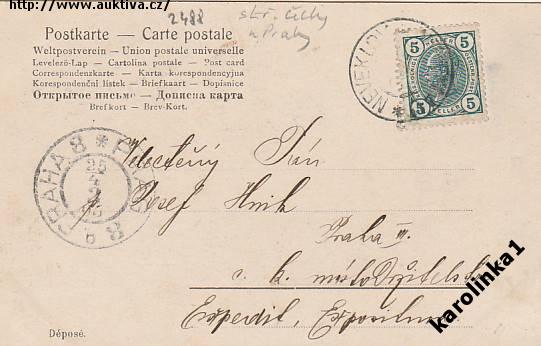 http://www.auktiva.cz/
2488
stř. Čechy
u Prahy
Postkarte — Carte postale
Weltpostverein — Union postale universelle
Levelező-Lap — Cartolina postale — Post card
Correspondenzkarte — Karta korespondencyjna
Korespondenční lístek — Briefkaart — Dopisnice
Открытое письмо — Дописна карта
Brefkort — Brev-Kort.
5 HELLER 5
5 HELLER 5
NEVEKLOV
PRAHA 8 * PRAG 8
25
4
b
Veléctěný Pán
Josef Hnik
Praha III.
c. k. místodržitelský
Expedit,
Déposé.
karolinka1